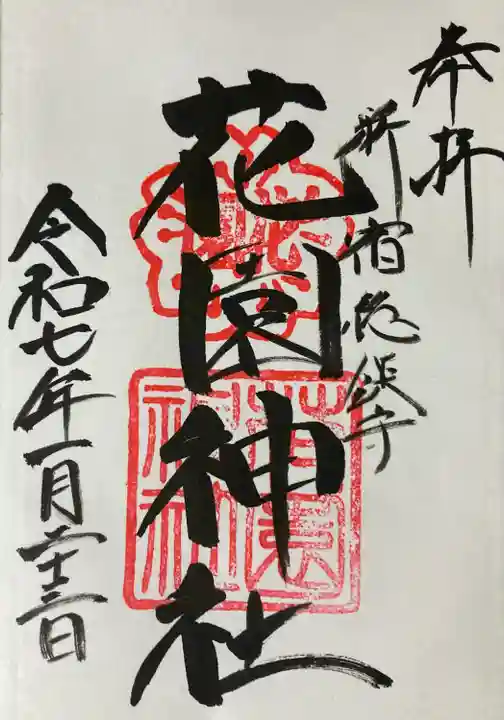 奉拝
新宿総鎮守
花園神社
花園神社
令和七年一月二十三日